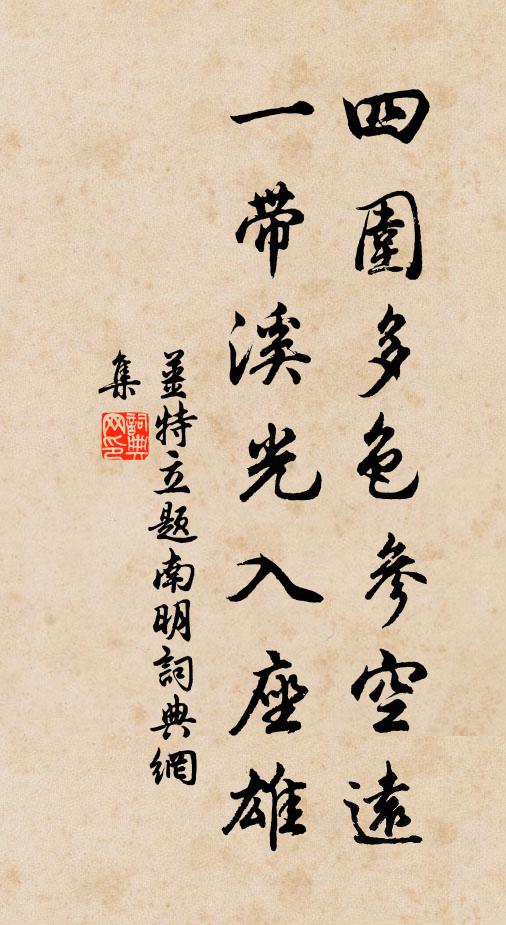 四圍多色參空遠
一帶溪光入座雄
姜特立題南明詞典網
集
詞典网印